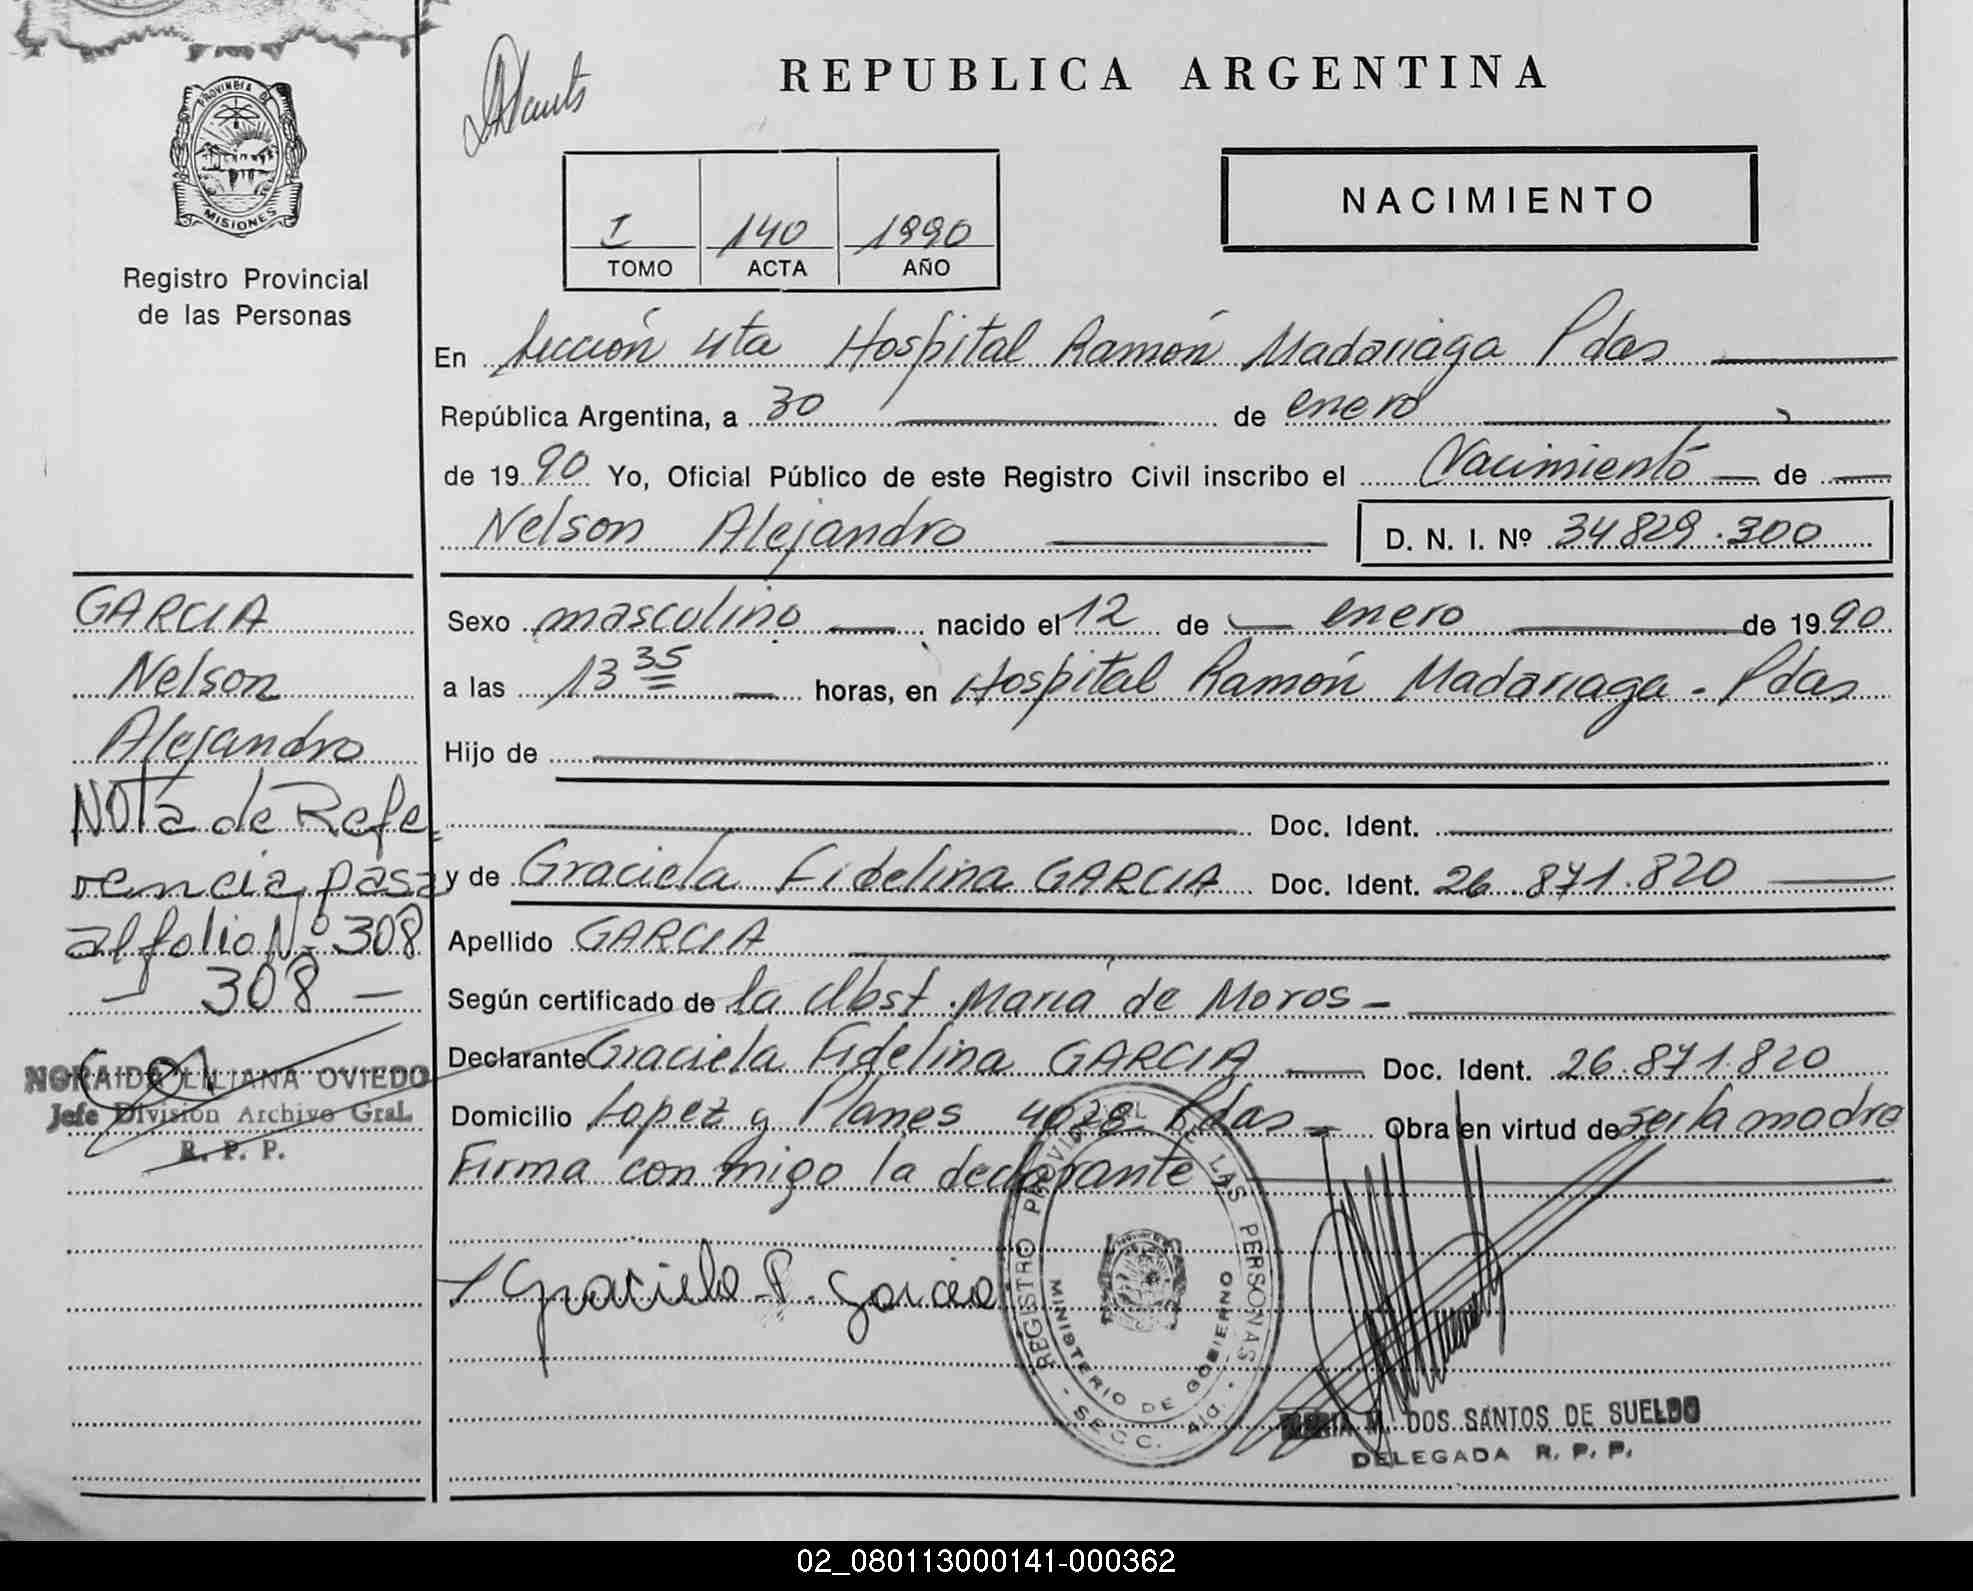 REPUBLICA ARGENTINA
PROVINCIA DE MISIONES
Registro Provincial
de las Personas
I 140 1990
TOMO ACTA AÑO
NACIMIENTO
En Sección 4ta Hospital Ramón Madariaga Pdas
República Argentina, a 30 de enero
de 1990 Yo, Oficial Público de este Registro Civil inscribo el Nacimiento de
Nelson Alejandro D. N. I. Nº 34829.300
GARCIA
Nelson
Alejandro
Nota de Refe
rencia pasa
al folio Nº 308
308
NORAIDA LILIANA OVIEDO
Jefe División Archivo Gral.
R. P. P.
Sexo masculino nacido el 12 de enero de 1990
a las 13 35 horas, en Hospital Ramón Madariaga. Pdas
Hijo de
Doc. Ident.
y de Graciela Fidelina GARCIA Doc. Ident. 26.871.820
Apellido GARCIA
Según certificado de la Obst. Maria de Moros
Declarante Graciela Fidelina GARCIA Doc. Ident. 26.871.820
Domicilio Lopez y Planes 4028 Pdas Obra en virtud de ser la madre
Firma con migo la declarante
Graciela F. Garcia
REGISTRO PROVINCIAL DE LAS PERSONAS
MINISTERIO DE GOBIERNO
SECC. 4ta.
MARIA M. DOS SANTOS DE SUELDO
DELEGADA R. P. P.
02_080113000141-000362